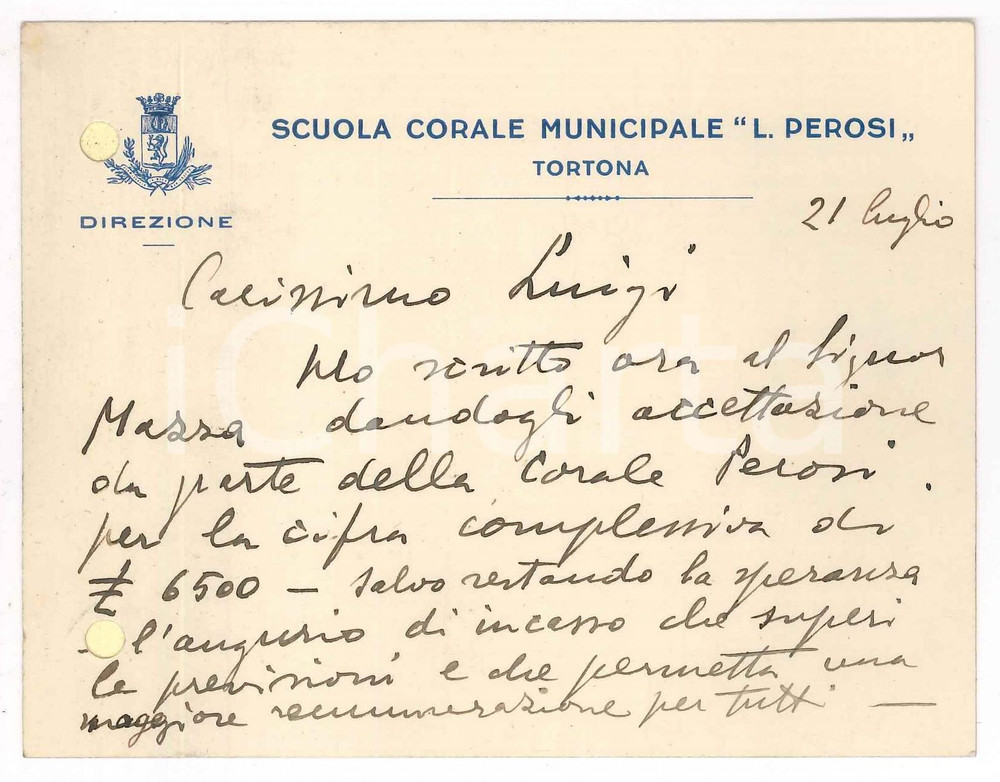 SCUOLA CORALE MUNICIPALE “L. PEROSI„
TORTONA
DIREZIONE
21 luglio
Carissimo Luigi
Ho scritto ora al Signor
Mazza dandogli accettazione
da parte della Corale Perosi.
per la cifra complessiva di
₤ 6500 — salvo restando la speranza
l'augurio di incasso che superi
le previsioni e che permetta una
maggiore remunerazione per tutti —
iCharta